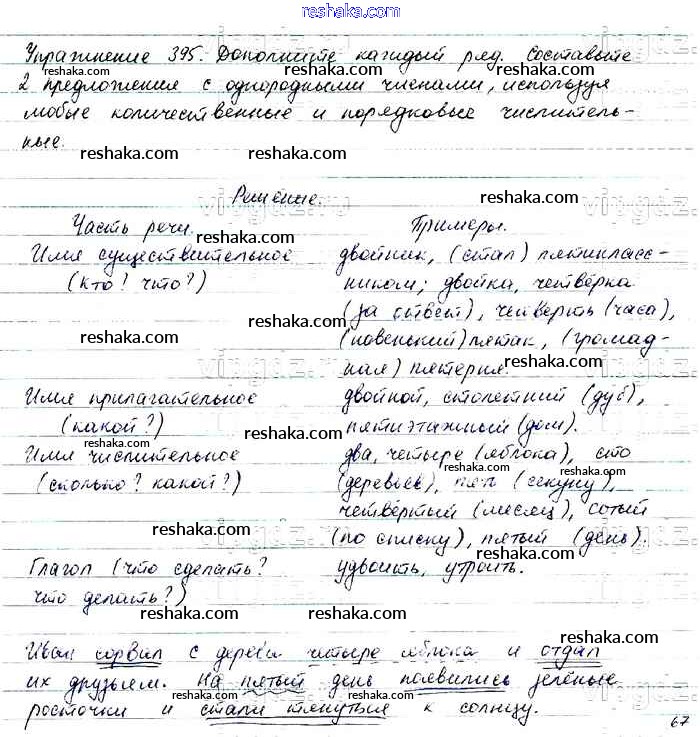 reshaka.com
Упражнение 395. Дополните каждый ряд. Составьте
reshaka.com reshaka.com
2 предложения с однородными членами, используя
reshaka.com
любые количественные и порядковые числитель-
ные.
reshaka.com reshaka.com
Решение.
reshaka.com
Часть речи. Примеры.
reshaka.com
Имя существительное двойник, (стал) пятикласс-
(кто? что?) ником; двойка, четвёрка
reshaka.com
(за ответ), четверть (часа),
reshaka.com
(новенский) пятак, (громад-
reshaka.com
ная) пятерня.
Имя прилагательное двойной, столетний (дуб),
reshaka.com
(какой?) пятиэтажный (дом).
reshaka.com
Имя числительное два, четыре (яблока), сто
reshaka.com
(сколько? какой?) (деревьев), пять (секунд),
четвёртый (месяц), сотый
reshaka.com
(по списку), пятый (день).
reshaka.com
Глагол (что сделать? удвоить, утроить.
что делать?)
reshaka.com reshaka.com
Иван сорвал с дерева четыре яблока и отдал
reshaka.com
их друзьям. На пятый день появились зелёные
reshaka.com reshaka.com
росточки и стали тянуться к солнцу.
67